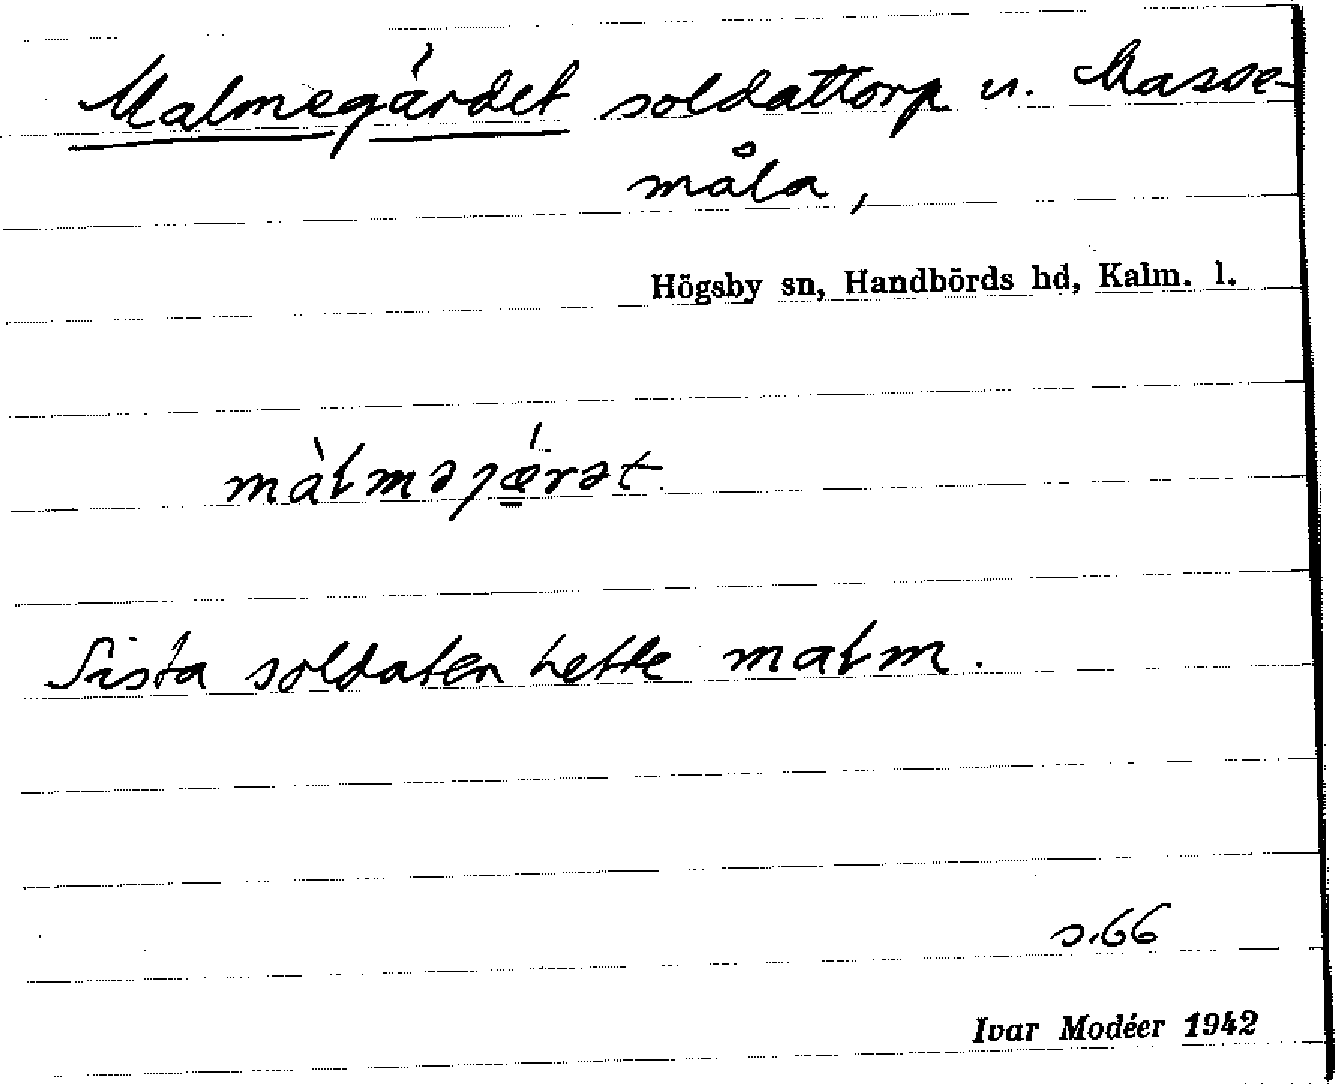 Malmegärdet soldattorp u. Masse-
måla,
Högsby sn, Handbörds hd, Kalm. l.
màɫməɟǽ̱rət
Sista soldaten hette maɫm.
s.66
Ivar Modéer 1942